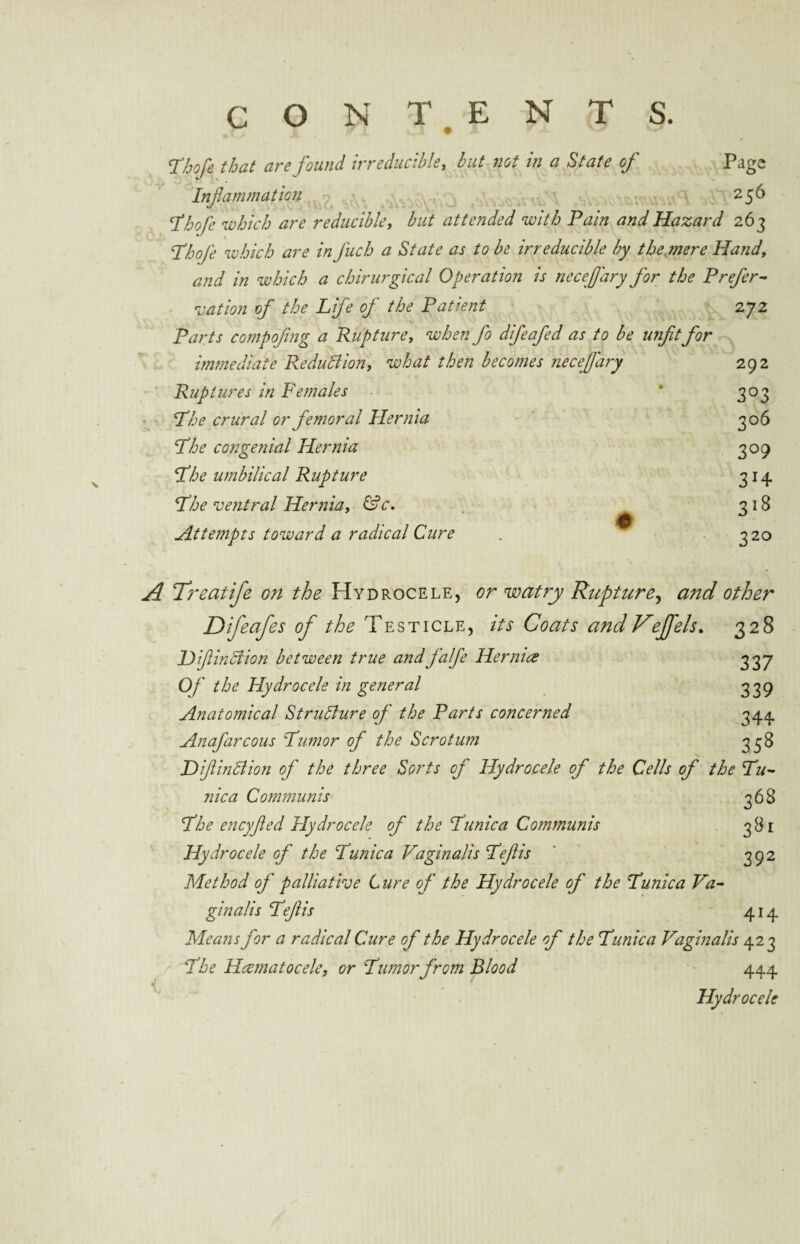 CONTENTS.
Thoſe that are found irreducible, but not in a State of Page
Inflammation 256
Thoſe which are reducible, but attended with Pain and Hazard 263
Thoſe which are in ſuch a State as to be irreducible by the mere Hand,
and in which a chirurgical Operation is neceſſary for the Preſer-
vation of the Life of the Patient 272
Parts compoſing a Rupture, when ſo diſeaſed as to be unfit for
immediate Reduction, what then becomes neceſſary 292
Ruptures in Females 303
The crural or femoral Hernia 306
The congenial Hernia 309
The umbilical Rupture 314
The ventral Hernia, &c. 318
Attempts toward a radical Cure 320
A Treatiſe on the HYDROCELE, or watry Rupture, and other
Diſeaſes of the TESTICLE, its Coats and Veſſels. 328
Diſtinction between true and falſe Herniæ 337
Of the Hydrocele in general 339
Anatomical Structure of the Parts concerned 344
Anaſarcous Tumor of the Scrotum 358
Diſtinction of the three Sorts of Hydrocele of the Cells of the Tu-
nica Communis 368
The encyſted Hydrocele of the Tunica Communis 381
Hydrocele of the Tunica Vaginalis Teſtis 392
Method of palliative Cure of the Hydrocele of the Tunica Va-
ginalis Teſtis 414
Means for a radical Cure of the Hydrocele of the Tunica Vaginalis 423
The Hæmatocele, or Tumor from Blood 444
Hydrocele